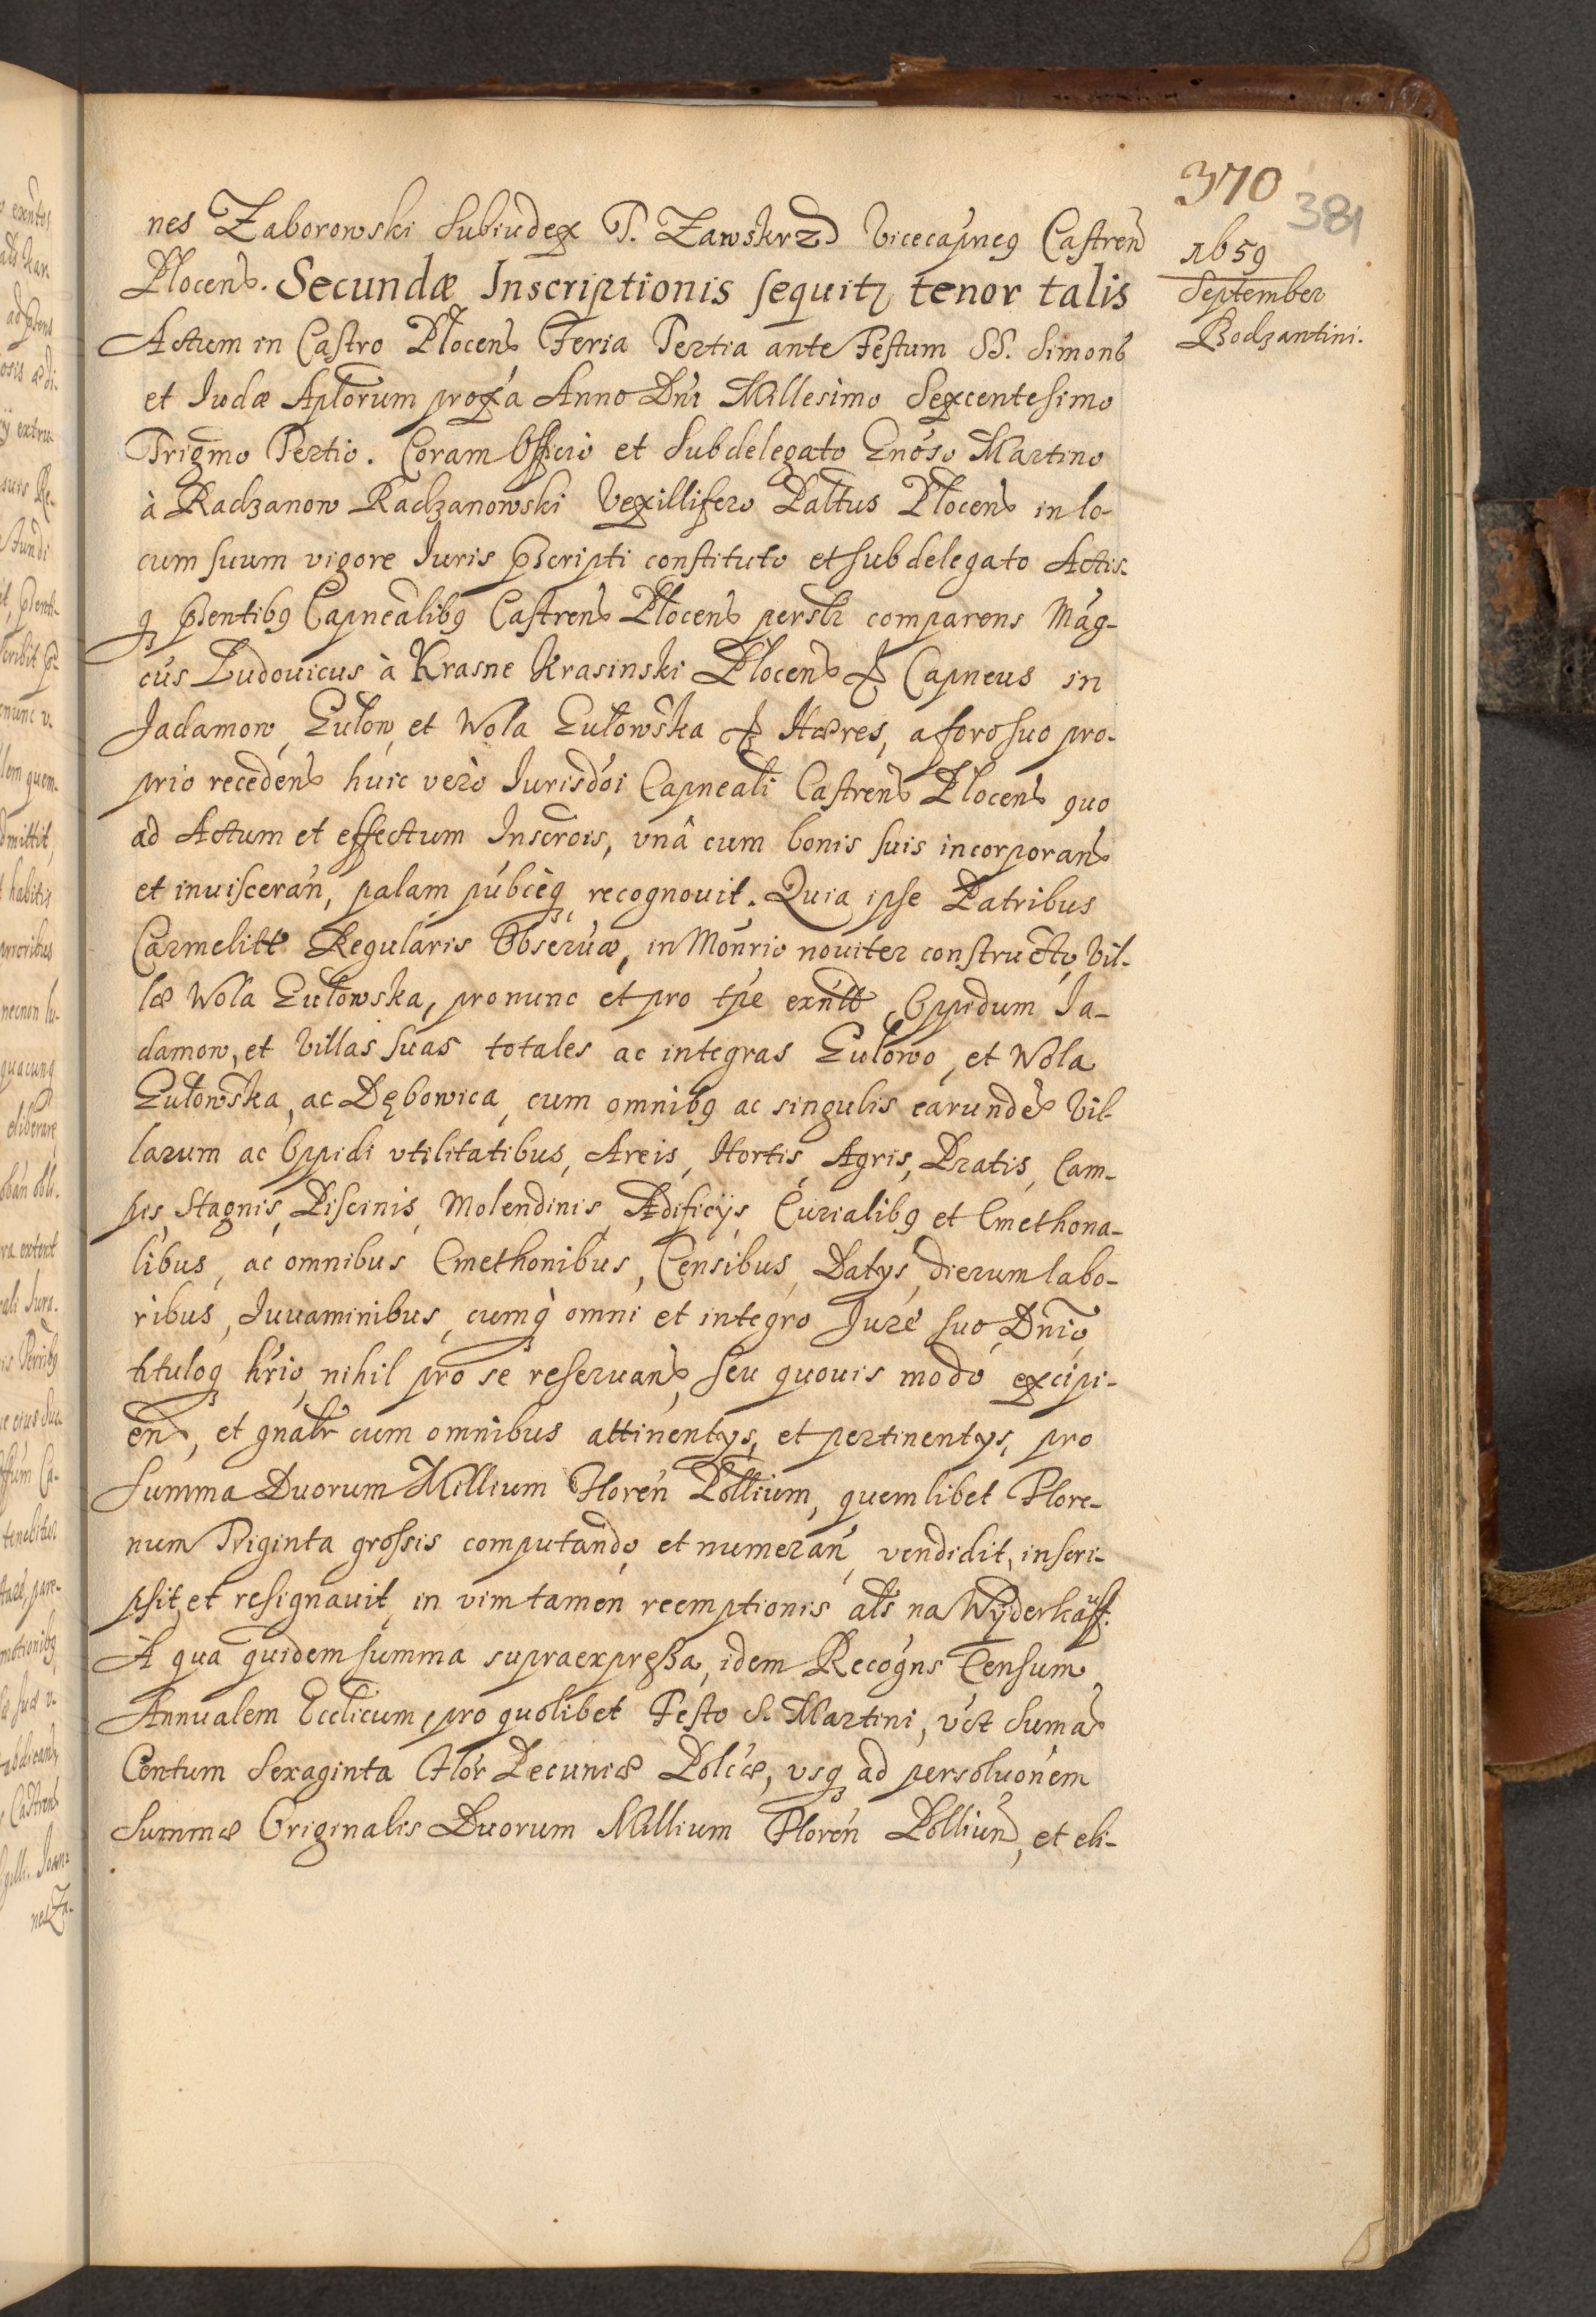 370
381
1659
September
Bodzantini.
nes Zaborowski Subiudex T. Zawskrz Vicecapneq Castren
Plocens. Secundæ Inscriptionis sequitz tenor talis
Actum in Castro Plocens Feria Tertia ante Festum SS. Simons
et Iudæ Aplorum proxa Anno Dni Millesimo Sexcentesimo
Trigmo Tertio. Coram Officio et Subdelegato Gnoso Martino
à Radzanow Radzanowski Vexillifero Palttus Plocens in lo-
cum suum vigore Iuris pscripti constituto et subdelegato Actis-
q psentibq Capnealibq Castrens Plocens perslr comparens Mag-
cus Ludovicus à Krasne Krasinski Plocens & Capneus in
Jadamow, Gułow, et Wola Gułowska & Hæres, a foro suo pro-
prio recedens huic vero Iurisdoi Capneali Castrens Plocens quo
ad Actum et effectum Inscrois, vnâ cum bonis suis incorporans
et inuisceran, palam pubceq recognouit. Quia ipse Patribus
Carmelitt Regularis Obseruæ, in Monrio nouiter constructo Vil-
læ Wola Gułowska, pro nunc et pro tpe exntt, Oppidum Ja-
damow, et Villas suas totales ac integras Gułowo, et Wola
Gułowska, ac Dębowica, cum omnibq ac singulis earunde Vil-
larum ac Oppidi vtilitatibus, Areis, Hortis, Agris, Pratis, Cam-
pis, Stagnis, Piscinis, Molendinis, Ædificijs, Curialibq et Cmethona-
libus, ac omnibus Cmethonibus, Censibus, Datys, dierum labo-
ribus, Iuuaminibus, cumq omni et integro Jure suo Dnio,
tituloq hrio, nihil pro se reseruans, seu quouis modo excipi-
ens, et gnalr cum omnibus attinentys, et pertinentys, pro
Summa Duorum Millium Floren Pollium, quemlibet Flore-
num Triginta grossis computando et numeran, vendidit, inscri-
psit, et resignauit, in vim tamen reemptionis als na Wyderkauff.
A qua quidem summa supraexpressa, idem Recogns Censum
Annualem Ecclicum, pro quolibet Festo S. Martini, vst Suma
Centum Sexaginta Flor Pecuniæ Polcæ, vsq ad persoluonem
Summæ Originalis Duorum Millium Floren Pollium, et eli-